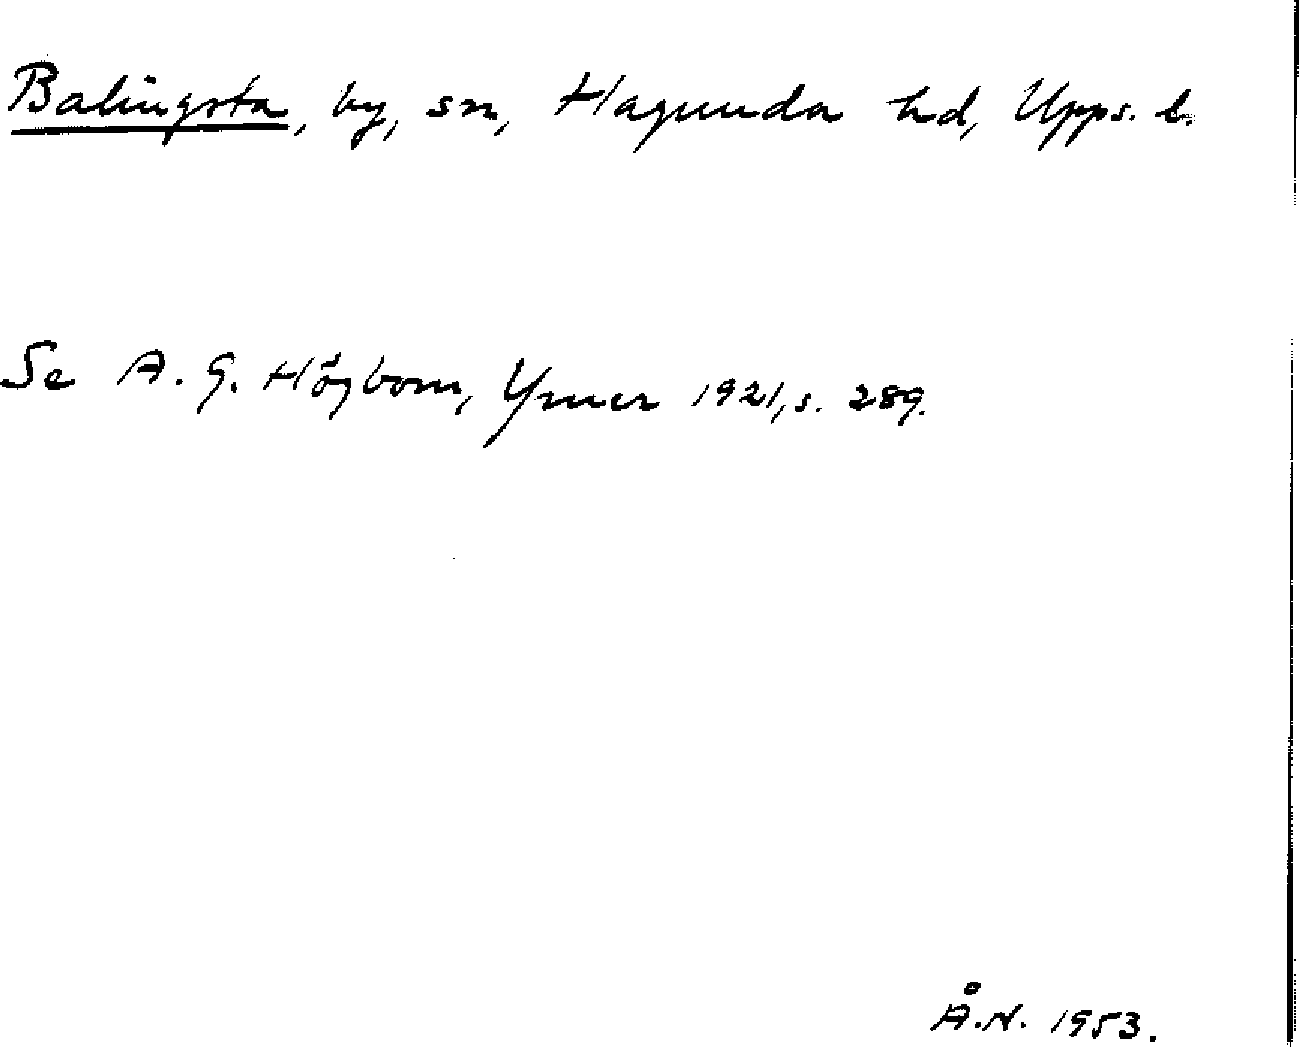 Balingsta, by, sn, Hagunda hd, Upps. l.
Se A. G. Högbom, Ymer 1921, s. 289.
Å.N. 1953.